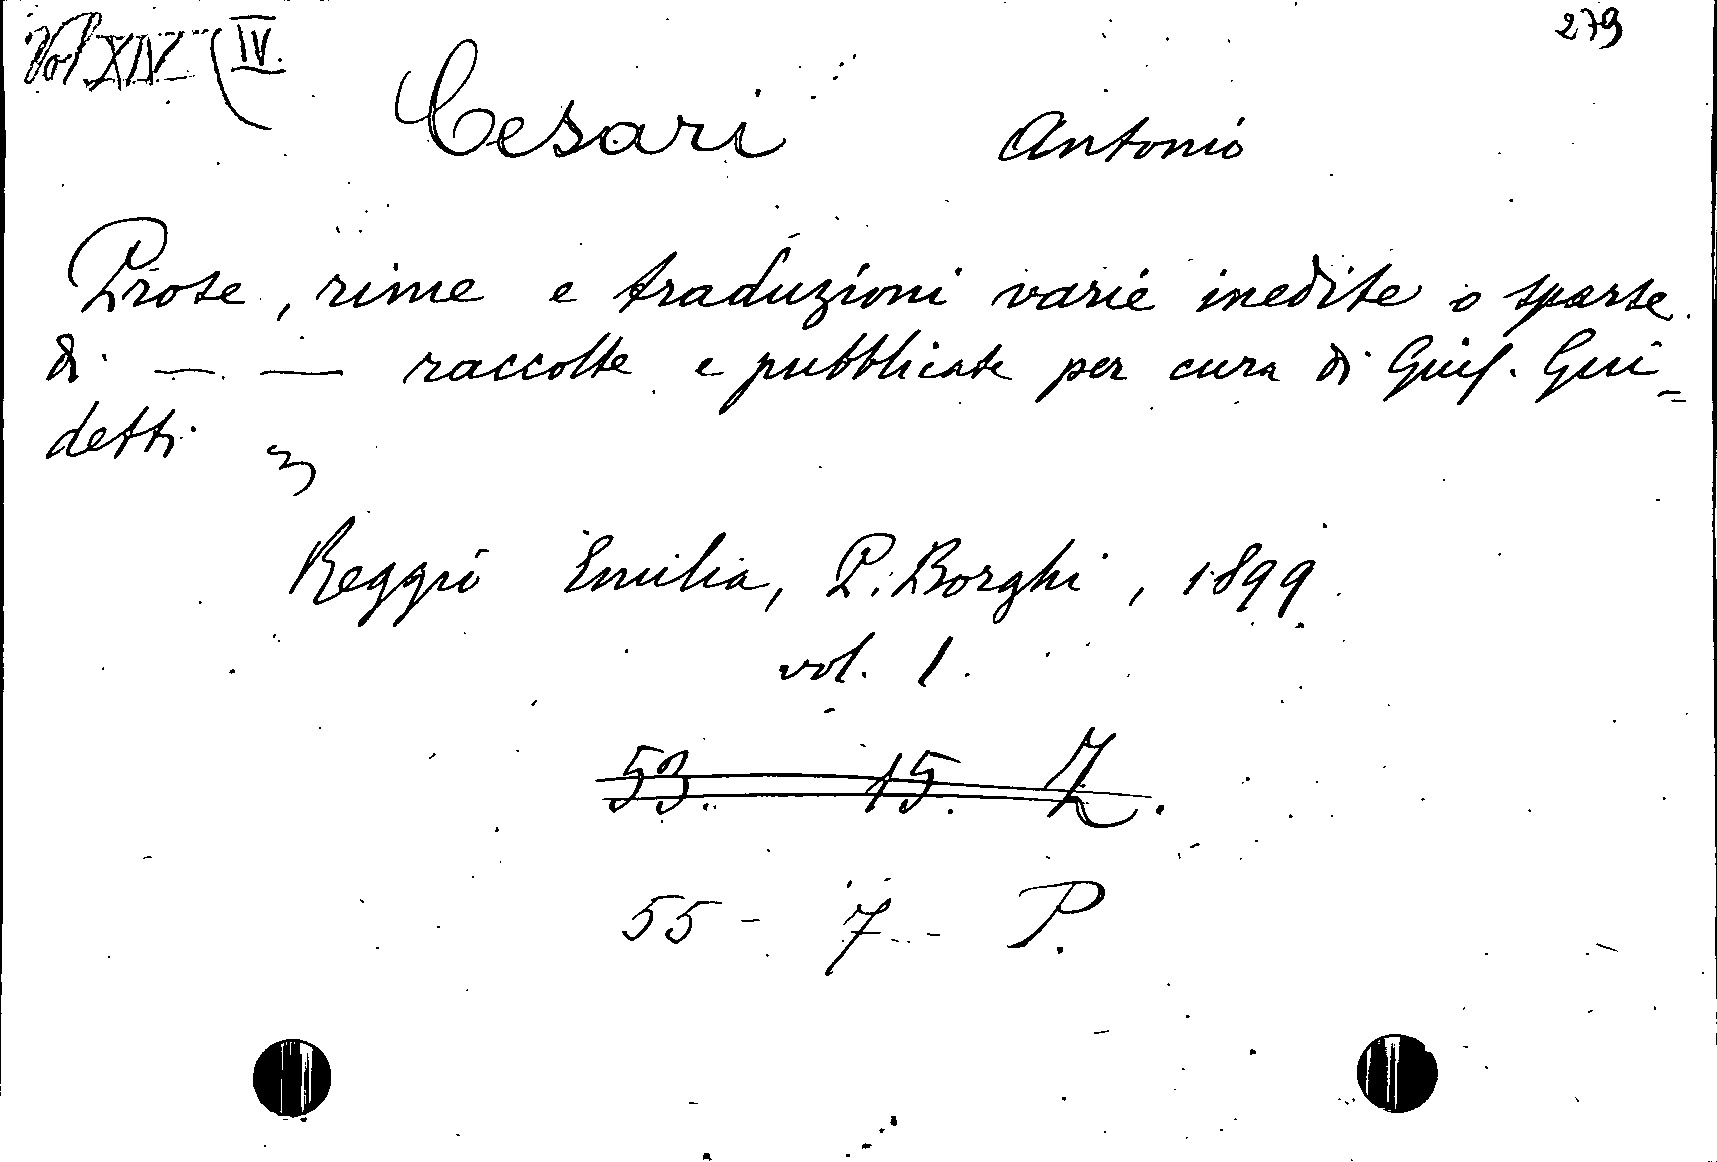 279
Vol XIV (IV.
Cesari Antonio
Prose, rime e traduzioni varie inedite o sparse
di — — raccolte e pubblicate per cura di Gius. Gui=
detti
Reggio Emilia, P. Borghi, 1899.
vol. 1.
53. 15. Z.
55 - 7 - P.